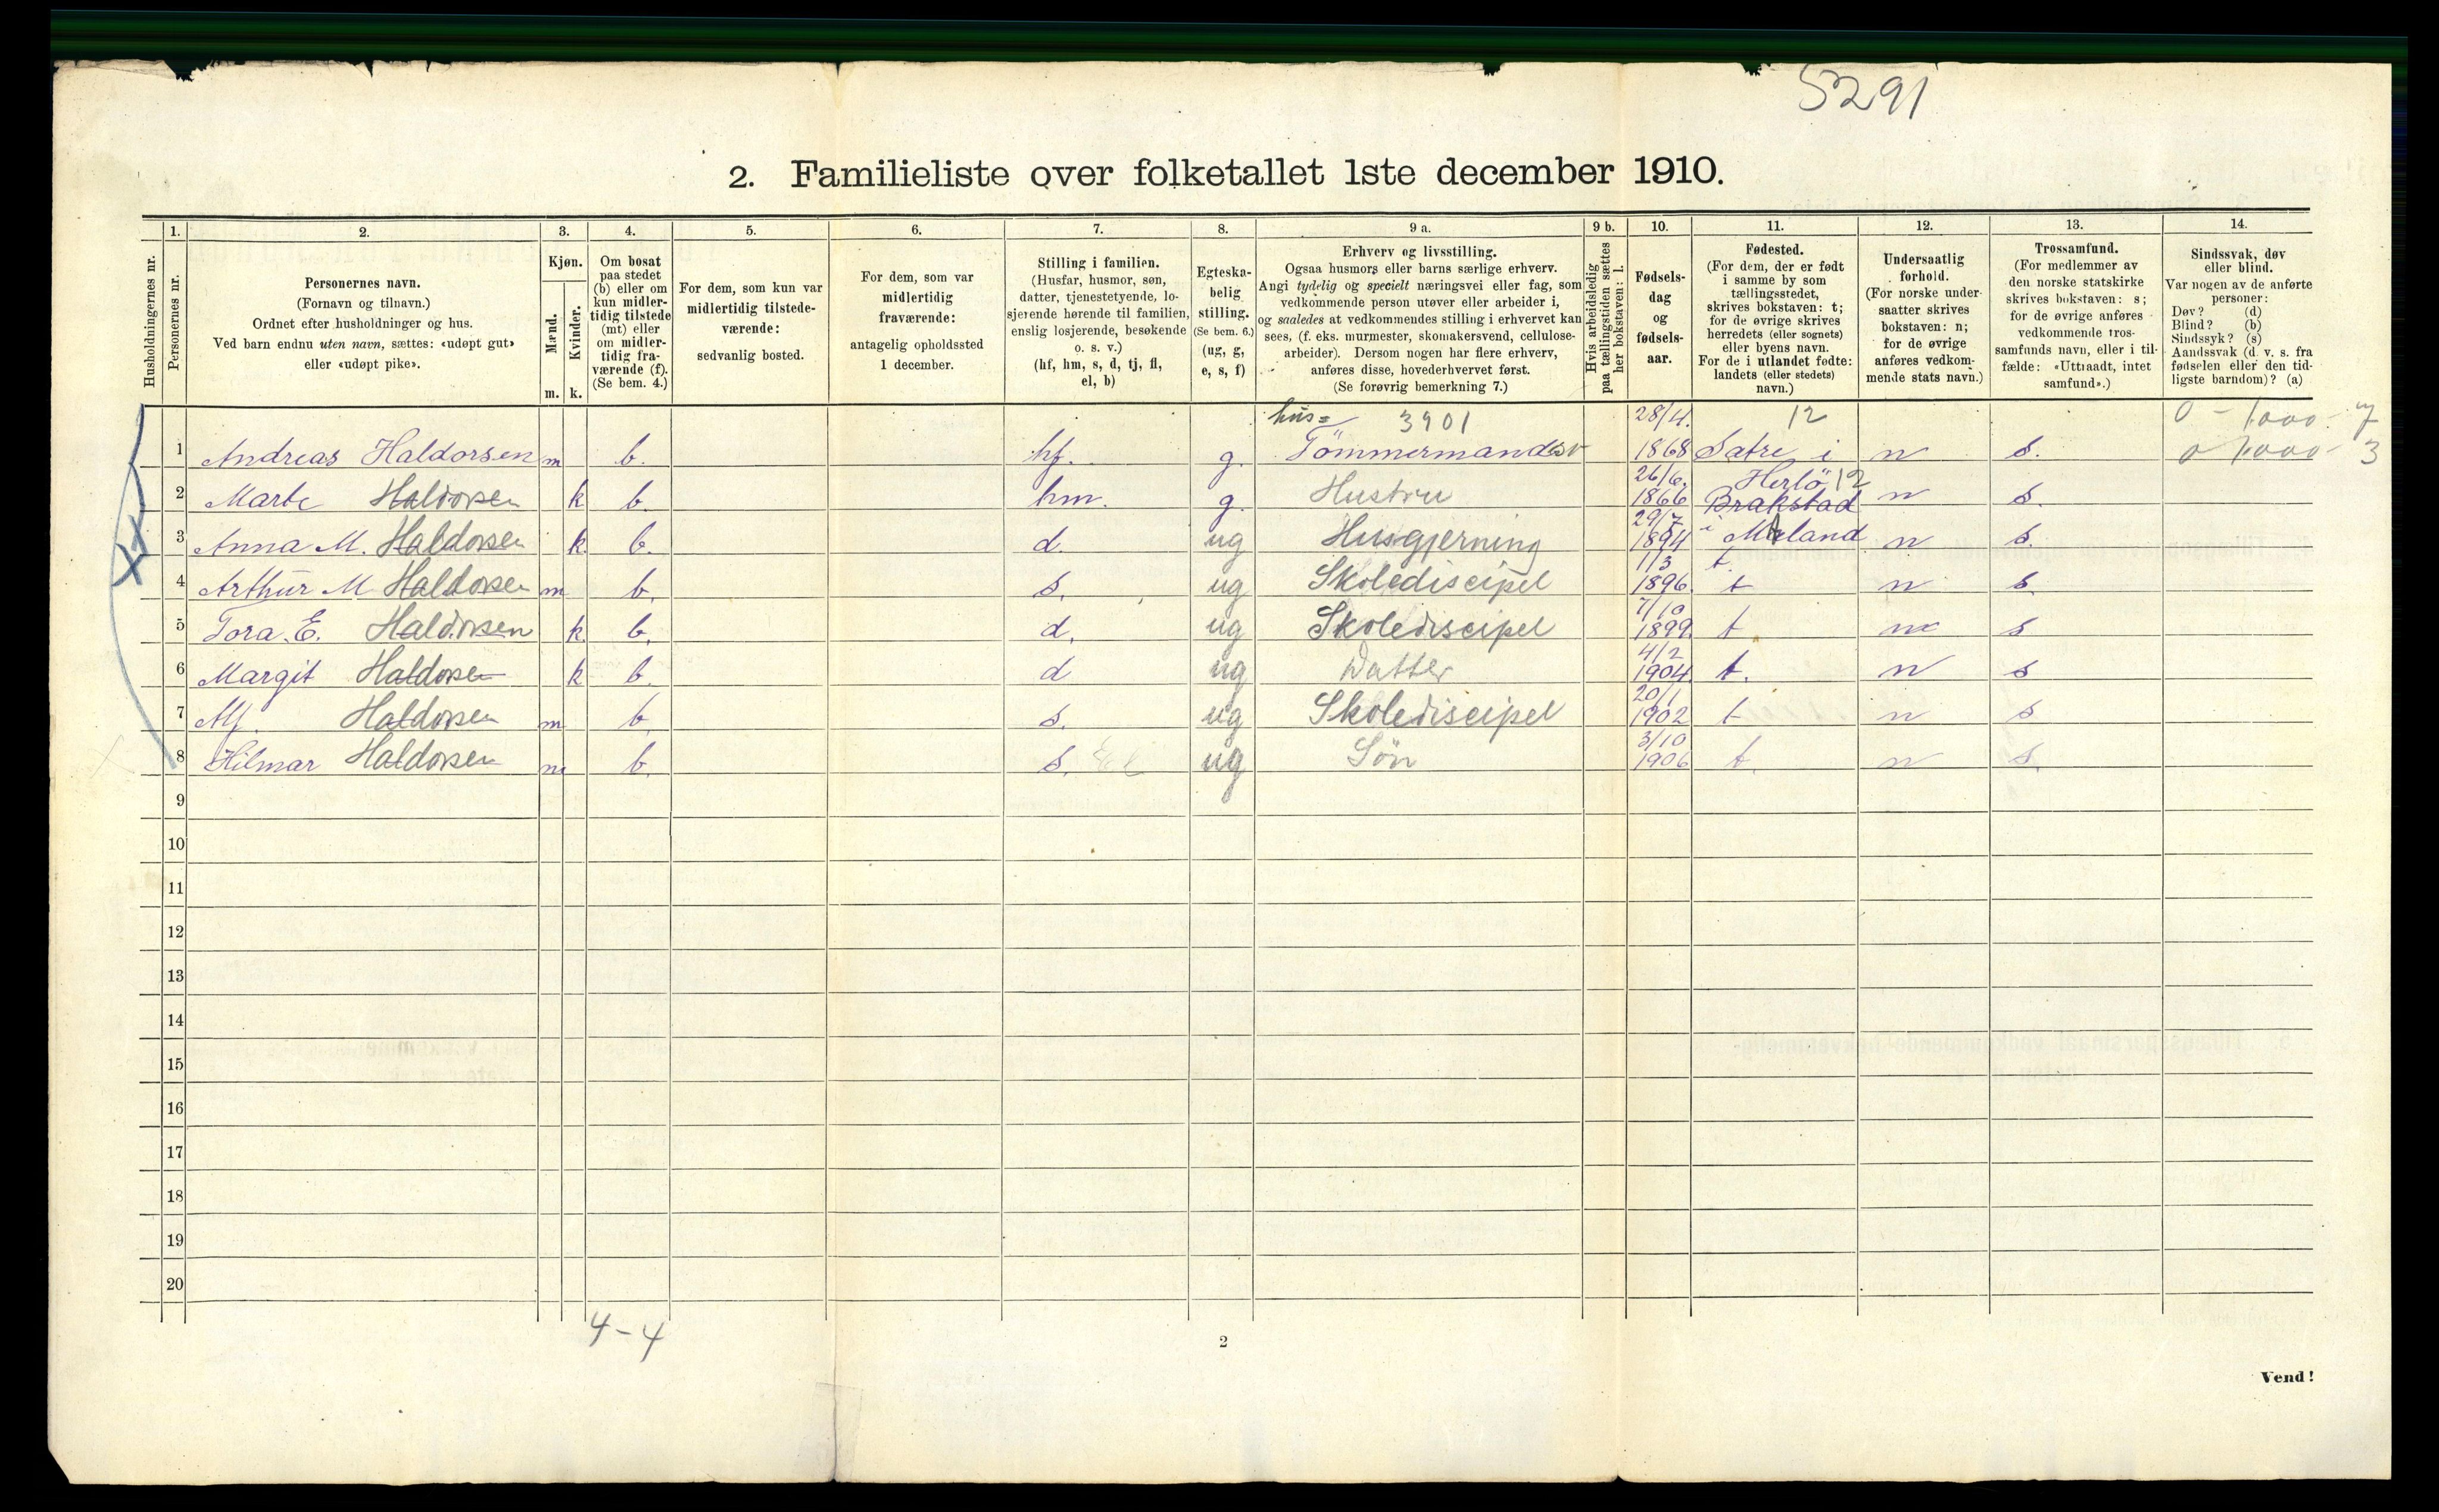 5291
2. Familieliste over folketallet 1ste december 1910.
1. 2. 3. 4. 5. 6. 7. 8. 9 a. 9 b. 10. 11. 12. 13. 14.
Husholdningernes nr.
Personernes nr.
Personernes navn.
(Fornavn og tilnavn.)
Ordnet efter husholdninger og hus.
Ved barn endnu uten navn, sættes: «udøpt gut»
eller «udøpt pike».
Kjøn.
Mænd.
Kvinder.
m. k.
Om bosat
paa stedet
(b) eller om
kun midler-
tidig tilstede
(mt) eller
om midler-
tidig fra-
værende (f).
(Se bem. 4.)
For dem, som kun var
midlertidig tilstede-
værende:
sedvanlig bosted.
For dem, som var
midlertidig
fraværende:
antagelig opholdssted
1 december.
Stilling i familien.
(Husfar, husmor, søn,
datter, tjenestetyende, lo-
sjerende hørende til familien,
enslig losjerende, besøkende
o. s. v.)
(hf, hm, s, d, tj, fl,
el, b)
Egteska-
belig
stilling.
(Se bem. 6.)
(ug, g,
e, s, f)
Erhverv og livsstilling.
Ogsaa husmors eller barns særlige erhverv.
Angi tydelig og specielt næringsvei eller fag, som
vedkommende person utøver eller arbeider i,
og saaledes at vedkommendes stilling i erhvervet kan
sees, (f. eks. murmester, skomakersvend, cellulose-
arbeider). Dersom nogen har flere erhverv,
anføres disse, hovederhvervet først.
(Se forøvrig bemerkning 7.)
Hvis arbeidsledig
paa tællingstiden sættes
her bokstaven: l.
Fødsels-
dag
og
fødsels-
aar.
Fødested.
(For dem, der er født
i samme by som
tællingsstedet,
skrives bokstaven: t;
for de øvrige skrives
herredets (eller sognets)
eller byens navn.
For de i utlandet fødte:
landets (eller stedets)
navn.)
Undersaatlig
forhold.
(For norske under-
saatter skrives
bokstaven: n;
for de øvrige
anføres vedkom-
mende stats navn.)
Trossamfund.
(For medlemmer av
den norske statskirke
skrives bokstaven: s;
for de øvrige anføres
vedkommende tros-
samfunds navn, eller i til-
fælde: «Uttraadt, intet
samfund».)
Sindssvak, døv
eller blind.
Var nogen av de anførte
personer:
Døv? (d)
Blind? (b)
Sindssyk? (s)
Aandssvak (d. v. s. fra
fødselen eller den tid-
ligste barndom)? (a)
hus= 3901 28/4. 12 0 - 1000 - 7
1 Andreas Haldorsen m b. hf. g. Tömmermand 1868 Sætre i n s. 0 1000 - 3
26/6. Herlö 12
2 Marte Haldorsen k b. hm. g. Hustru 1866 Brakstad n s.
29/7 i
3 Anna M. Haldorsen k. b. d. ug Husgjerning 1894 n s.
1/3 t.
4 Arthur M Haldorsen m b. s. ug Skolediscipel 1896. t n s.
7/10
5 Tora. E. Haldorsen k. b. d. ug Skolediscipel 1899. t n s
4/2
6 Margit Haldorsen k b. d ug Datter 1904. t. n s
20/1
7 Alf. Haldorsen m b s. ug Skolediscipel 1902 t n s
3/10
8 Hilmar Haldorsen m b. s. ug Sön 1906 t. n s.
9
10
11
12
13
14
15
16
17
18
19
20
4-4
2
Vend!